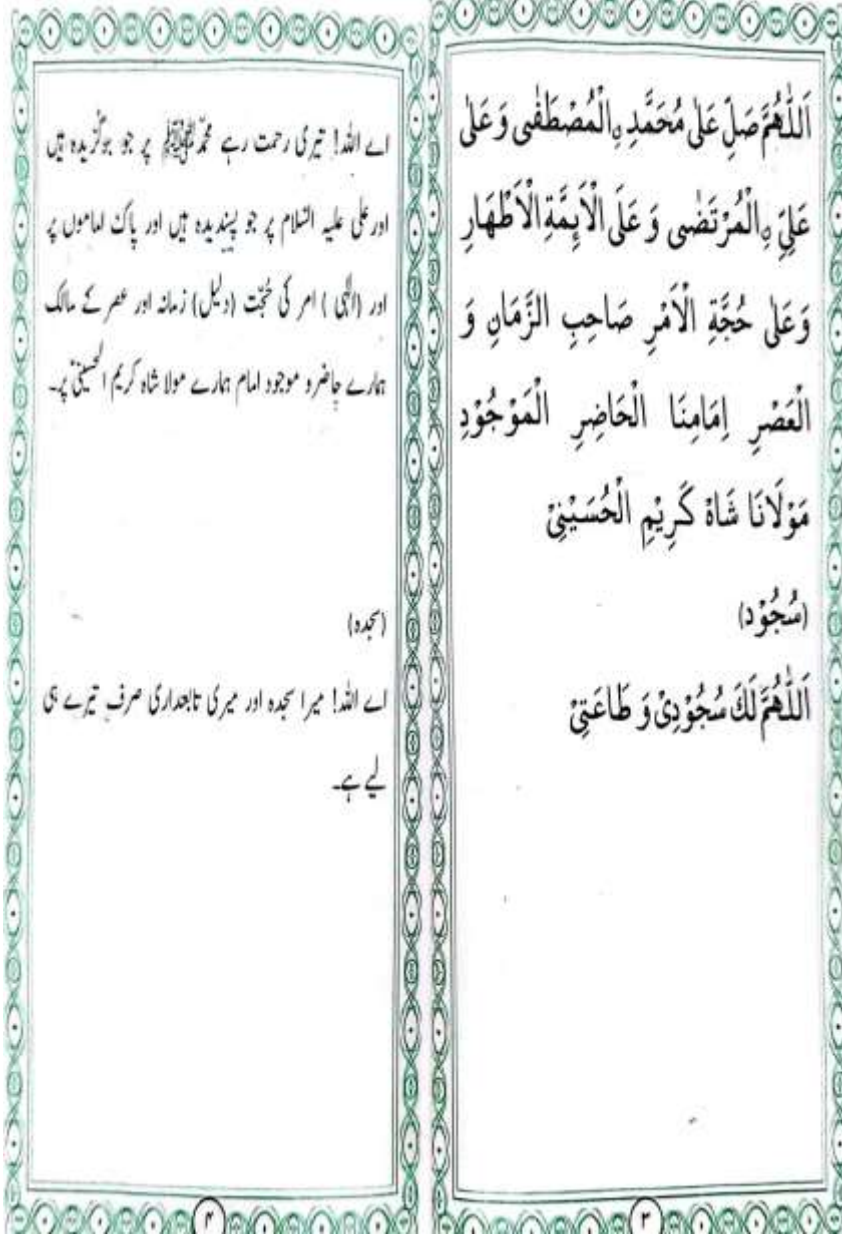 اَللّٰهُمَّ صَلِّ عَلٰى مُحَمَّدِ ۣالْمُصْطَفٰى وَ عَلٰى
عَلِيِّ ۣالْمُرْتَضٰى وَ عَلَى الْاَئِمَّةِ الْاَطْهَارِ
وَ عَلٰى حُجَّةِ الْاَمْرِ صَاحِبِ الزَّمَانِ وَ
الْعَصْرِ اِمَامِنَا الْحَاضِرِ الْمَوْجُوْدِ
مَوْلَانَا شَاهْ كَرِيْمِ الْحُسَيْنِيْ
(سُجُوْد)
اَللّٰهُمَّ لَكَ سُجُوْدِيْ وَ طَاعَتِيْ
۳
اے اللہ! تیری رحمت رہے محمّد ﷺ پر جو برگزیدہ ہیں
اور علی علیہ السّلام پر جو پسندیدہ ہیں اور پاک اماموں پر
اور (الٰہی) امر کی حُجّت (دلیل) زمانہ اور عصر کے مالک
ہمارے حاضر و موجود امام ہمارے مولا شاہ کریم الحسینیؑ پر۔
(سجدہ)
اے اللہ! میرا سجدہ اور میری تابعداری صرف تیرے ہی
لیے ہے۔
۴